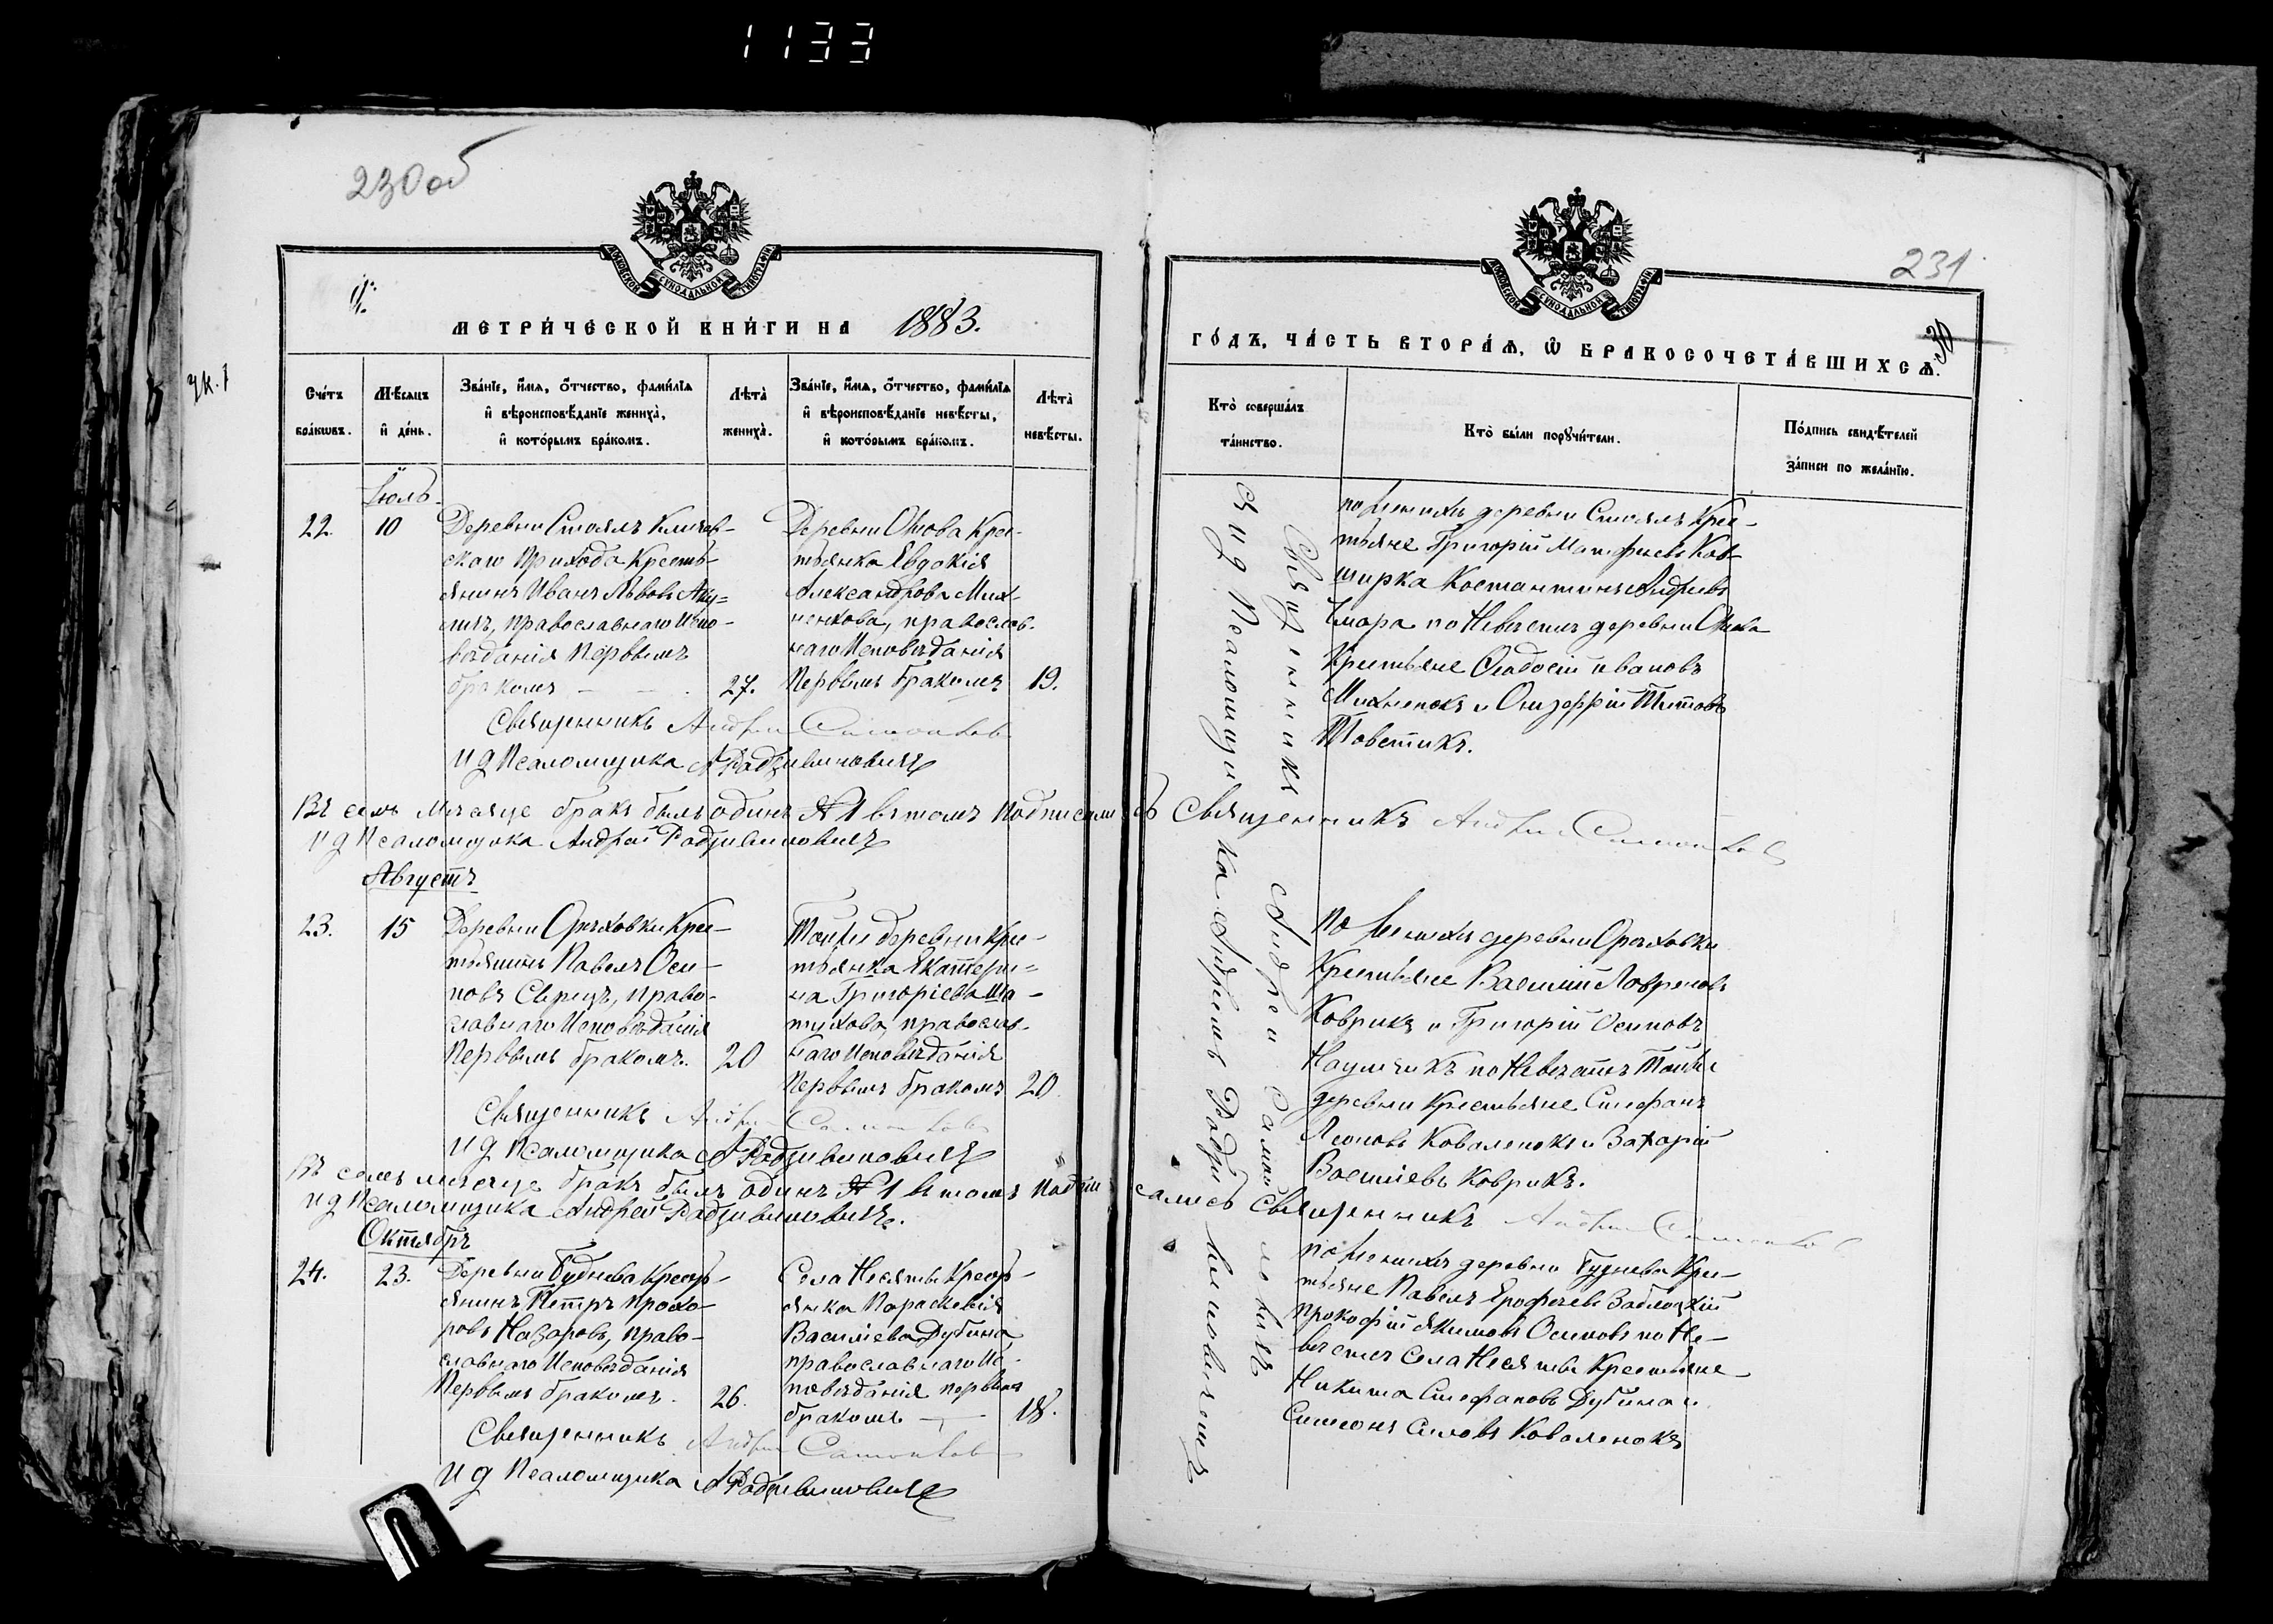 1133
230об
МОСКОВСКОЙ СУНОДАЛЬНОЙ ТИПОГРАФІИ
МЕТРИЧЕСКОЙ КНИГИ НА 1883.
Счетъ браковъ.
Мѣсяцъ и день.
Званіе, имя, отчество, фамилія и вѣроисповѣданіе жениха, и которымъ бракомъ.
Лѣта жениха.
Званіе, имя, отчество, фамилія и вѣроисповѣданіе невѣсты, и которымъ бракомъ.
Лѣта невѣсты.
Іюль.
22. 10
Деревни Стаялъ
скаго Прихода Кресть-
янинъ Иванъ Львовъ
православнаго Испо-
вѣданія Первымъ
бракомъ 27.
Деревни Крес-
тьянка Евдокія
Александрова Мих-
ненкова, православ.
наго Исповѣданія
Первымъ бракомъ 19.
Священникъ Андрей
И д Псаломщика А Радзивиновичъ
Въ семъ Мѣсяце бракъ былъ одинъ № 1 въ томъ подписались Священникъ Андрей
и д Псаломщика Андрей Радзивиновичъ
Августъ
23. 15
Деревни Орѣховки Крес-
тьянинъ Павелъ Оси-
повъ право-
славнаго Исповѣданія
Первымъ бракомъ. 20
Тойже деревни Крес-
тьянка Екатери-
на Григоріева Ша-
православ-
наго Исповѣданія
Первымъ бракомъ 20
Священникъ Андрей
И д Псаломщика А Радзивиновичъ
Въ семъ мѣсяце бракъ былъ одинъ № 1 въ томъ Подписались Священникъ Андрей
и д Псаломщика Андрей Радзивиновичъ.
Октябрь
24. 23.
Деревни Буднева Крест-
янинъ Петръ Прохо-
ровъ Назаровъ, право-
славнаго Исповѣданія
Первымъ бракомъ. 26.
Села Неся Крест-
янка Параскевія
Василіева Дубина
православнаго Ис-
повѣданія первымъ
бракомъ 18.
Священникъ Андрей
И д Псаломщика А Радзивиновичъ
231
МОСКОВСКОЙ СУНОДАЛЬНОЙ ТИПОГРАФІИ
ГОДЪ, ЧАСТЬ ВТОРАЯ, Ѡ БРАКОСОЧЕТАВШИХСЯ.
Кто совершалъ таинство.
Кто были поручители.
Подпись свидѣтелей записи по желанію.
Священникъ Андрей
и д Псаломщика Андрей
по Женихѣ деревни Стаялъ Крес-
тьяне Григорій
Костантинъ Андреевъ
по Невѣстѣ деревни
Крестьяне Ивановъ
Михненокъ и Онуфрій Титовъ
Товстикъ.
По Женихѣ деревни Орѣховки
Крестьяне Василій Лавреновъ
Коврикъ и Григорій Осиповъ
по Невѣстѣ Тойже
деревни Крестьяне Стефанъ
Коваленокъ и Захарій
Василіевъ Коврикъ.
по Женихѣ деревни Буднева Крес-
тьяне Павелъ Ерофеевъ
Прокофій Якимовъ Осиповъ по Не-
вѣстѣ Села Крестьяне
Никита Стефановъ Дубина и
Симеонъ Коваленокъ